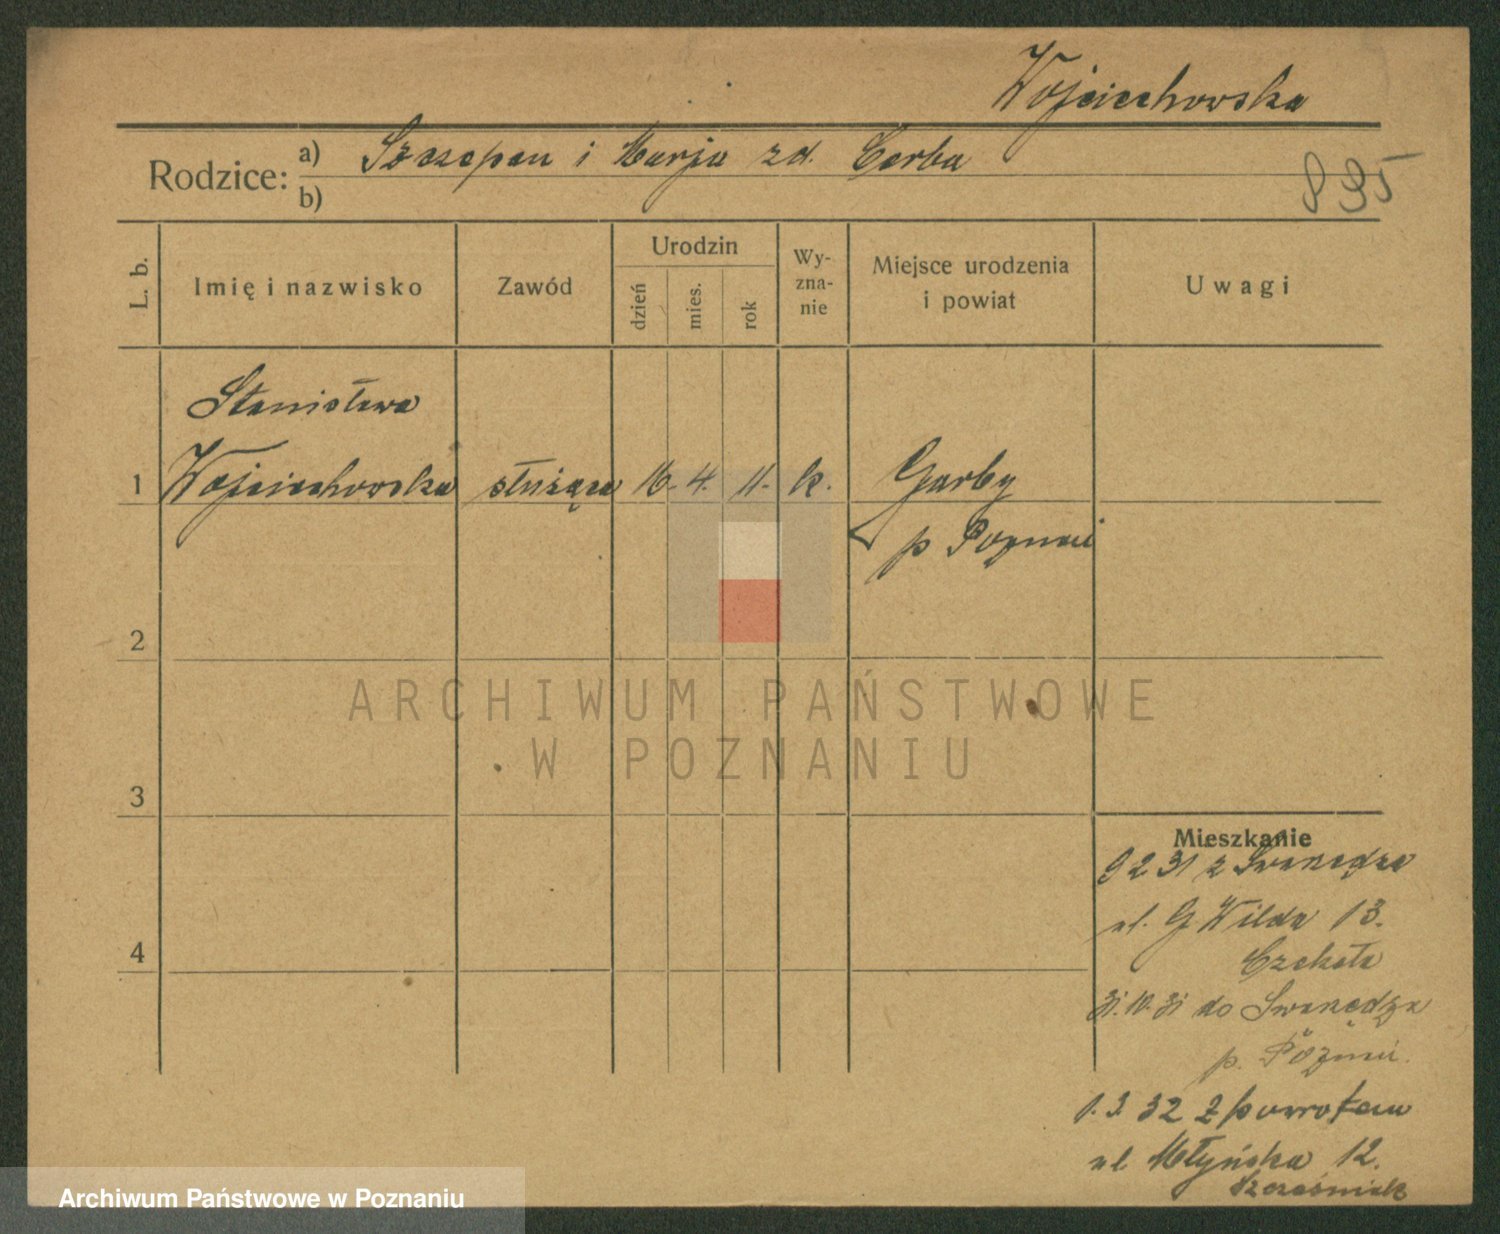 Wojciechowska
Rodzice: a) Szczepan i Marja zd. Cerba
b)
895
L. b.
Imię i nazwisko
Zawód
Urodzin
dzień
mies.
rok
Wy-
zna-
nie
Miejsce urodzenia
i powiat
Uwagi
Stanisława
1 Wojciechowska służąca 16. 4. 11. k. Garby
p Poznań
2
ARCHIWUM PAŃSTWOWE
W POZNANIU
3
Mieszkanie
9 2 31 z Swarzędza
ul. G. Wilda 13.
Czekała
4
31. 10. 31 do Swarzędza
p. Poznań.
1. 3. 32 z powrotem
ul Młyńska 12.
Szcześniak
Archiwum Państwowe w Poznaniu